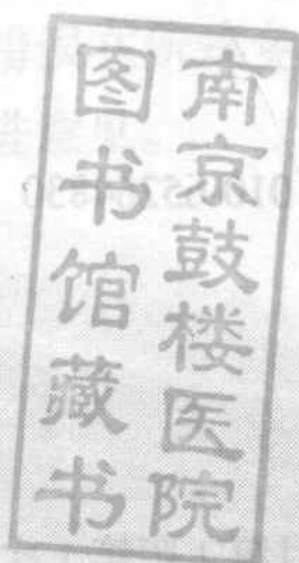 南京鼓楼医院
图书馆藏书